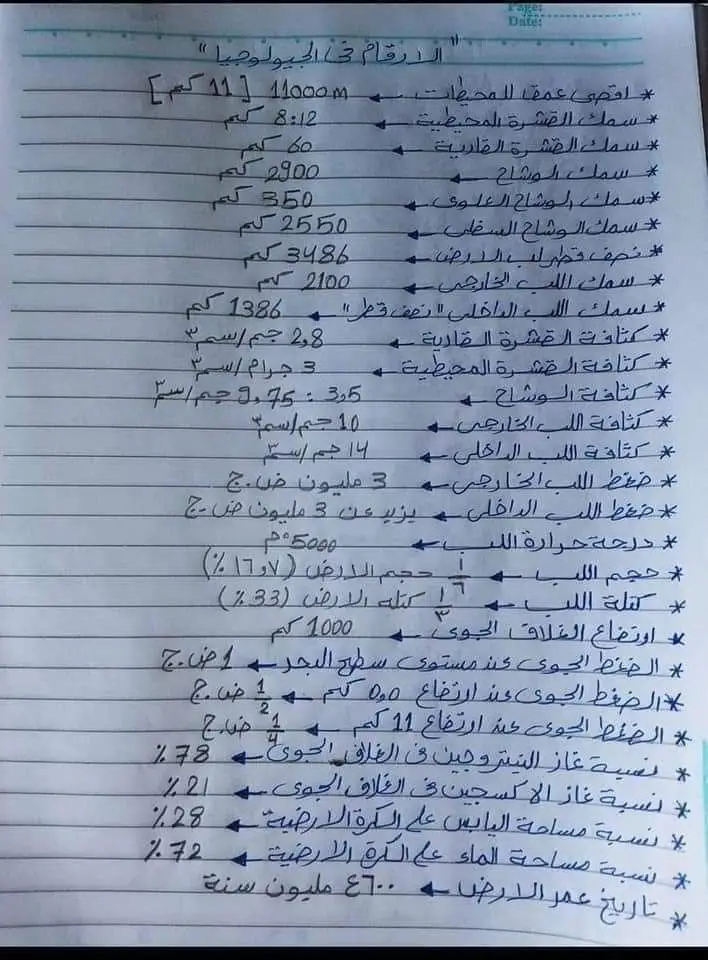 Page:
Date:
"الارقام فى الجيولوجيا"
* اقصى عمق للمحيطات ← 11000m [11 كم]
* سمك القشرة المحيطية ← 8:12 كم
* سمك القشرة القارية ← 60 كم
* سمك الوشاح ← 2900 كم
* سمك الوشاح العلوى ← 350 كم
* سمك الوشاح السفلى ← 2550 كم
* نصف قطر لب الارض ← 3486 كم
* سمك اللب الخارجى ← 2100 كم
* سمك اللب الداخلى "نصف قطر" ← 1386 كم
* كثافة القشرة القارية ← 2,8 جم/سم٣
* كثافة القشرة المحيطية ← 3 جرام/سم٣
* كثافة الوشاح ← 3,5 : 9,75 جم/سم٣
* كثافة اللب الخارجى ← 10 جم/سم٣
* كثافة اللب الداخلى ← 14 جم/سم٣
* ضغط اللب الخارجى ← 3 مليون ض.ج
* ضغط اللب الداخلى ← يزيد عن 3 مليون ض.ج
* درجة حرارة اللب ← 5000°م
* حجم اللب ← ١/٦ حجم الارض (١٦و٧ %)
* كتلة اللب ← ١/٣ كتله الارض (33 %)
* ارتفاع الغلاف الجوى ← 1000 كم
* الضغط الجوى عند مستوى سطح البحر ← 1 ض.ج
* الضغط الجوى عند ارتفاع ٥,٥ كم ← 1/2 ض.ج
* الضغط الجوى عند ارتفاع 11 كم ← 1/4 ض.ج
* نسبة غاز النيتروجين فى الغلاف الجوى ← 78 %
* نسبة غاز الاكسجين فى الغلاف الجوى ← 21 %
* نسبة مساحة اليابس على الكرة الارضية ← 28 %
* نسبة مساحة الماء على الكرة الارضية ← 72 %
* تاريخ عمر الارض ← ٤٦٠٠ مليون سنة